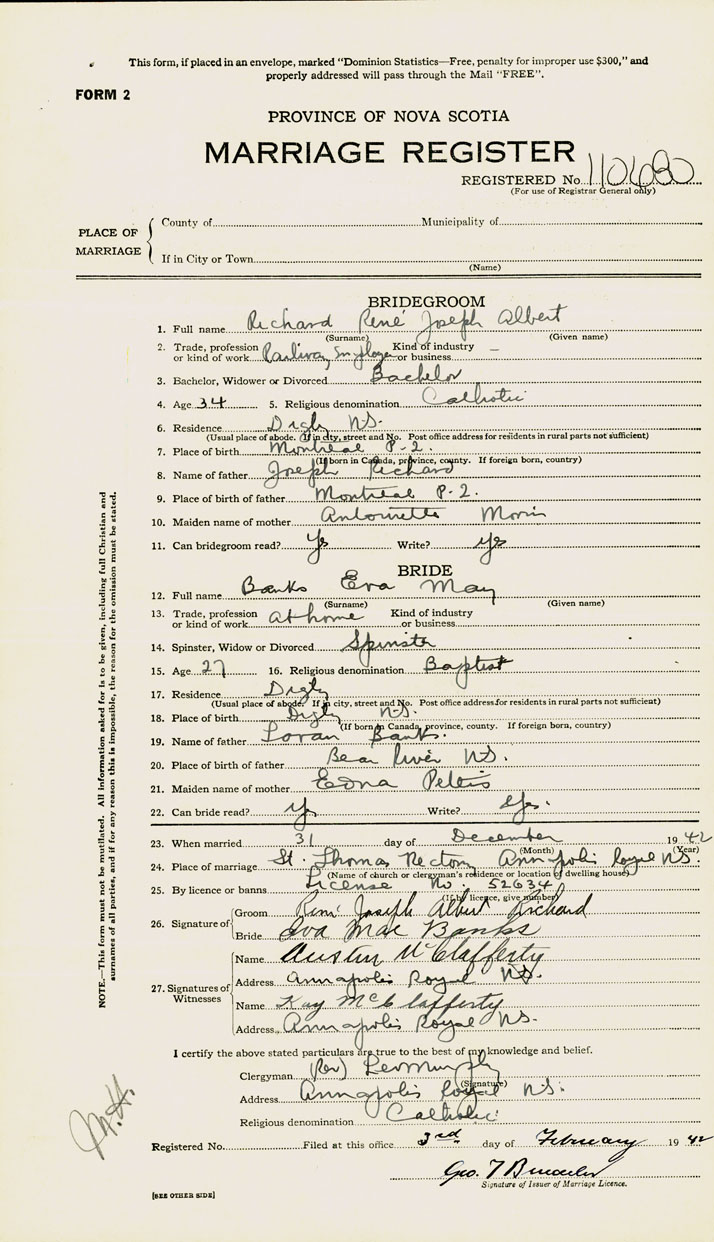 This form, if placed in an envelope, marked "Dominion Statistics—Free, penalty for improper use $300," and
properly addressed will pass through the Mail "FREE".
FORM 2
PROVINCE OF NOVA SCOTIA
MARRIAGE REGISTER
REGISTERED No. 110680
(For use of Registrar General only)
PLACE OF MARRIAGE
County of Municipality of
If in City or Town
(Name)
BRIDEGROOM
1. Full name Richard René Joseph Albert
(Surname) (Given name)
2. Trade, profession or kind of work Railway Employee Kind of industry or business —
3. Bachelor, Widower or Divorced Bachelor
4. Age 34 5. Religious denomination Catholic
6. Residence Digby NS.
(Usual place of abode. If in city, street and No. Post office address for residents in rural parts not sufficient)
7. Place of birth Montreal P.Q.
(If born in Canada, province, county. If foreign born, country)
8. Name of father Joseph Richard
9. Place of birth of father Montreal P.Q.
10. Maiden name of mother Antoinette Morin
11. Can bridegroom read? Yes Write? yes
BRIDE
12. Full name Banks Eva May
(Surname) (Given name)
13. Trade, profession or kind of work at home Kind of industry or business
14. Spinster, Widow or Divorced Spinster
15. Age 27 16. Religious denomination Baptist
17. Residence Digby
(Usual place of abode. If in city, street and No. Post office address for residents in rural parts not sufficient)
18. Place of birth Digby NS.
(If born in Canada, province, county. If foreign born, country)
19. Name of father Loran Banks.
20. Place of birth of father Bear River NS.
21. Maiden name of mother Edna Pettis
22. Can bride read? Yes Write? Yes.
23. When married 31 day of December 1942
(Month) (Year)
24. Place of marriage St. Thomas Rectory Annapolis Royal NS.
(Name of church or clergyman's residence or location of dwelling house)
25. By licence or banns License No. 52634
(If by licence, give number)
26. Signature of
Groom René Joseph Albert Richard
Bride Eva Mae Banks
27. Signatures of Witnesses
Name Austin McClafferty
Address Annapolis Royal NS.
Name Kay McClafferty
Address Annapolis Royal NS.
I certify the above stated particulars are true to the best of my knowledge and belief.
Clergyman (Rev) Leo Murphy
(Signature)
Address Annapolis Royal N.S.
Religious denomination Catholic
Registered No. Filed at this office 3rd day of February 1942
Geo. T
Signature of Issuer of Marriage Licence.
[SEE OTHER SIDE]
NOTE.—This form must not be mutilated. All information asked for is to be given, including full Christian and
surnames of all parties, and if for any reason this is impossible, the reason for the omission must be stated.
M.H.